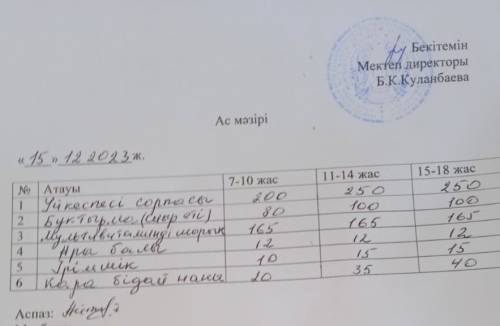 Бекітемін
Мектеп директоры
Б.К.Куланбаева
Ас мәзірі
«15» 12 2023ж.
№ Атауы 7-10 жас 11-14 жас 15-18 жас
1 Үйкеспесі сорпасы 200 250 250
2 Буктырма (сиыр еті) 80 100 100
3 Мультивитаминді 165 165 165
4 Ара балы 12 12 12
5 Ірімшік 10 15 15
6 Кара бидай наны 20 35 40
Аспаз: